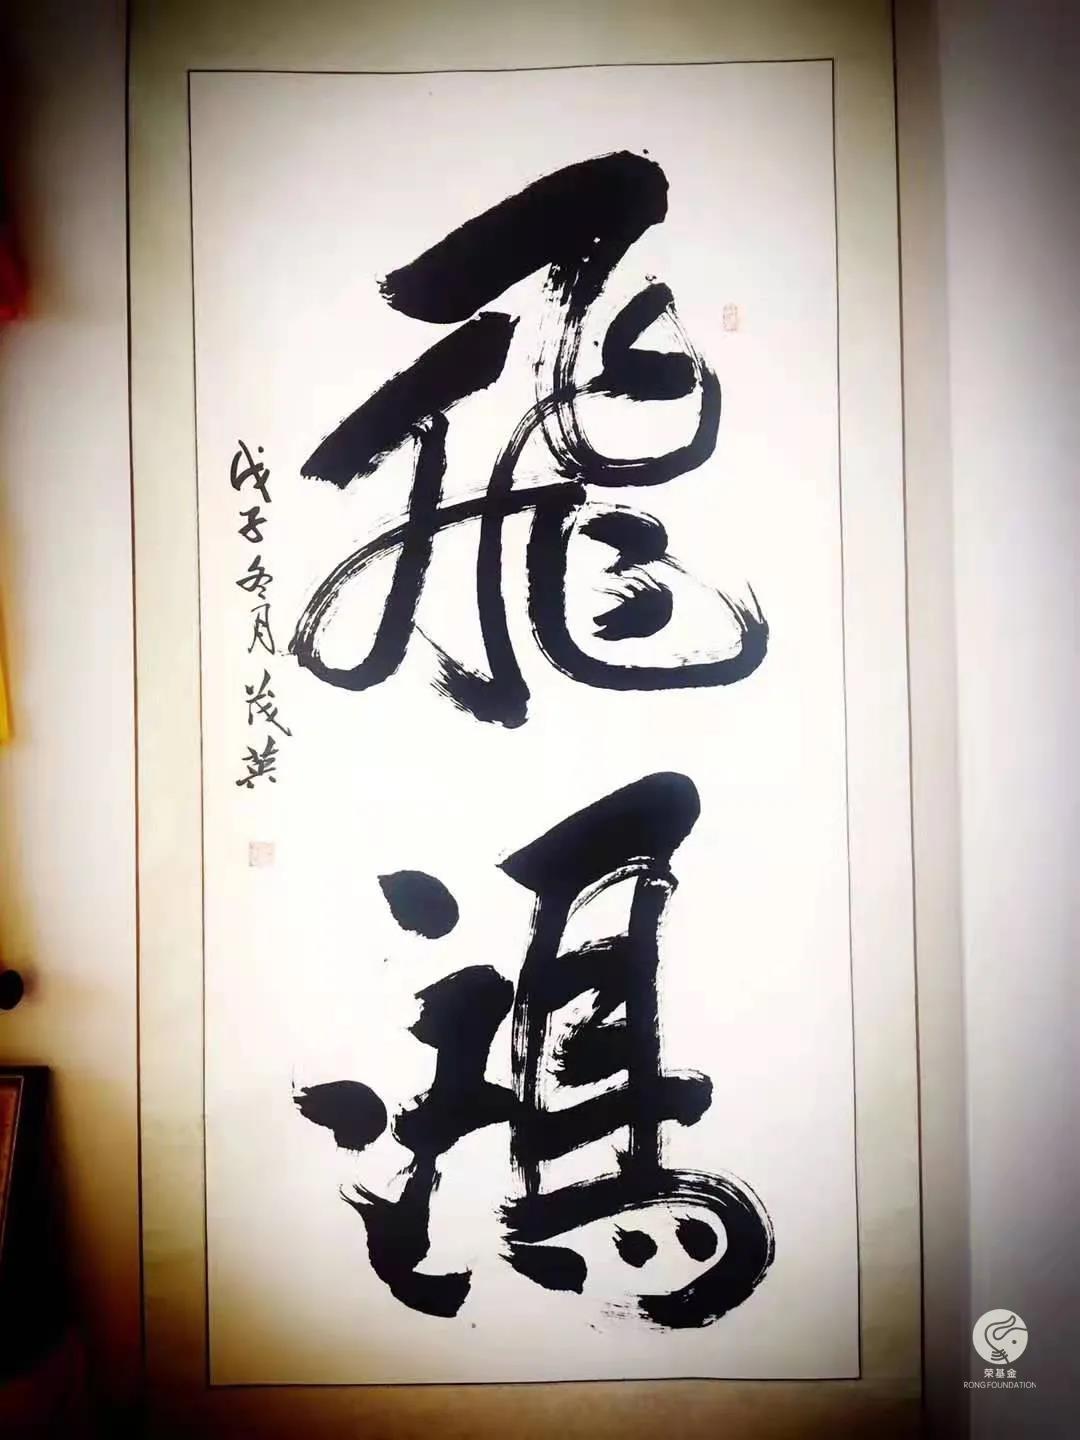 飛鴻
戊子冬月 茂英
荣基金
RONG FOUNDATION